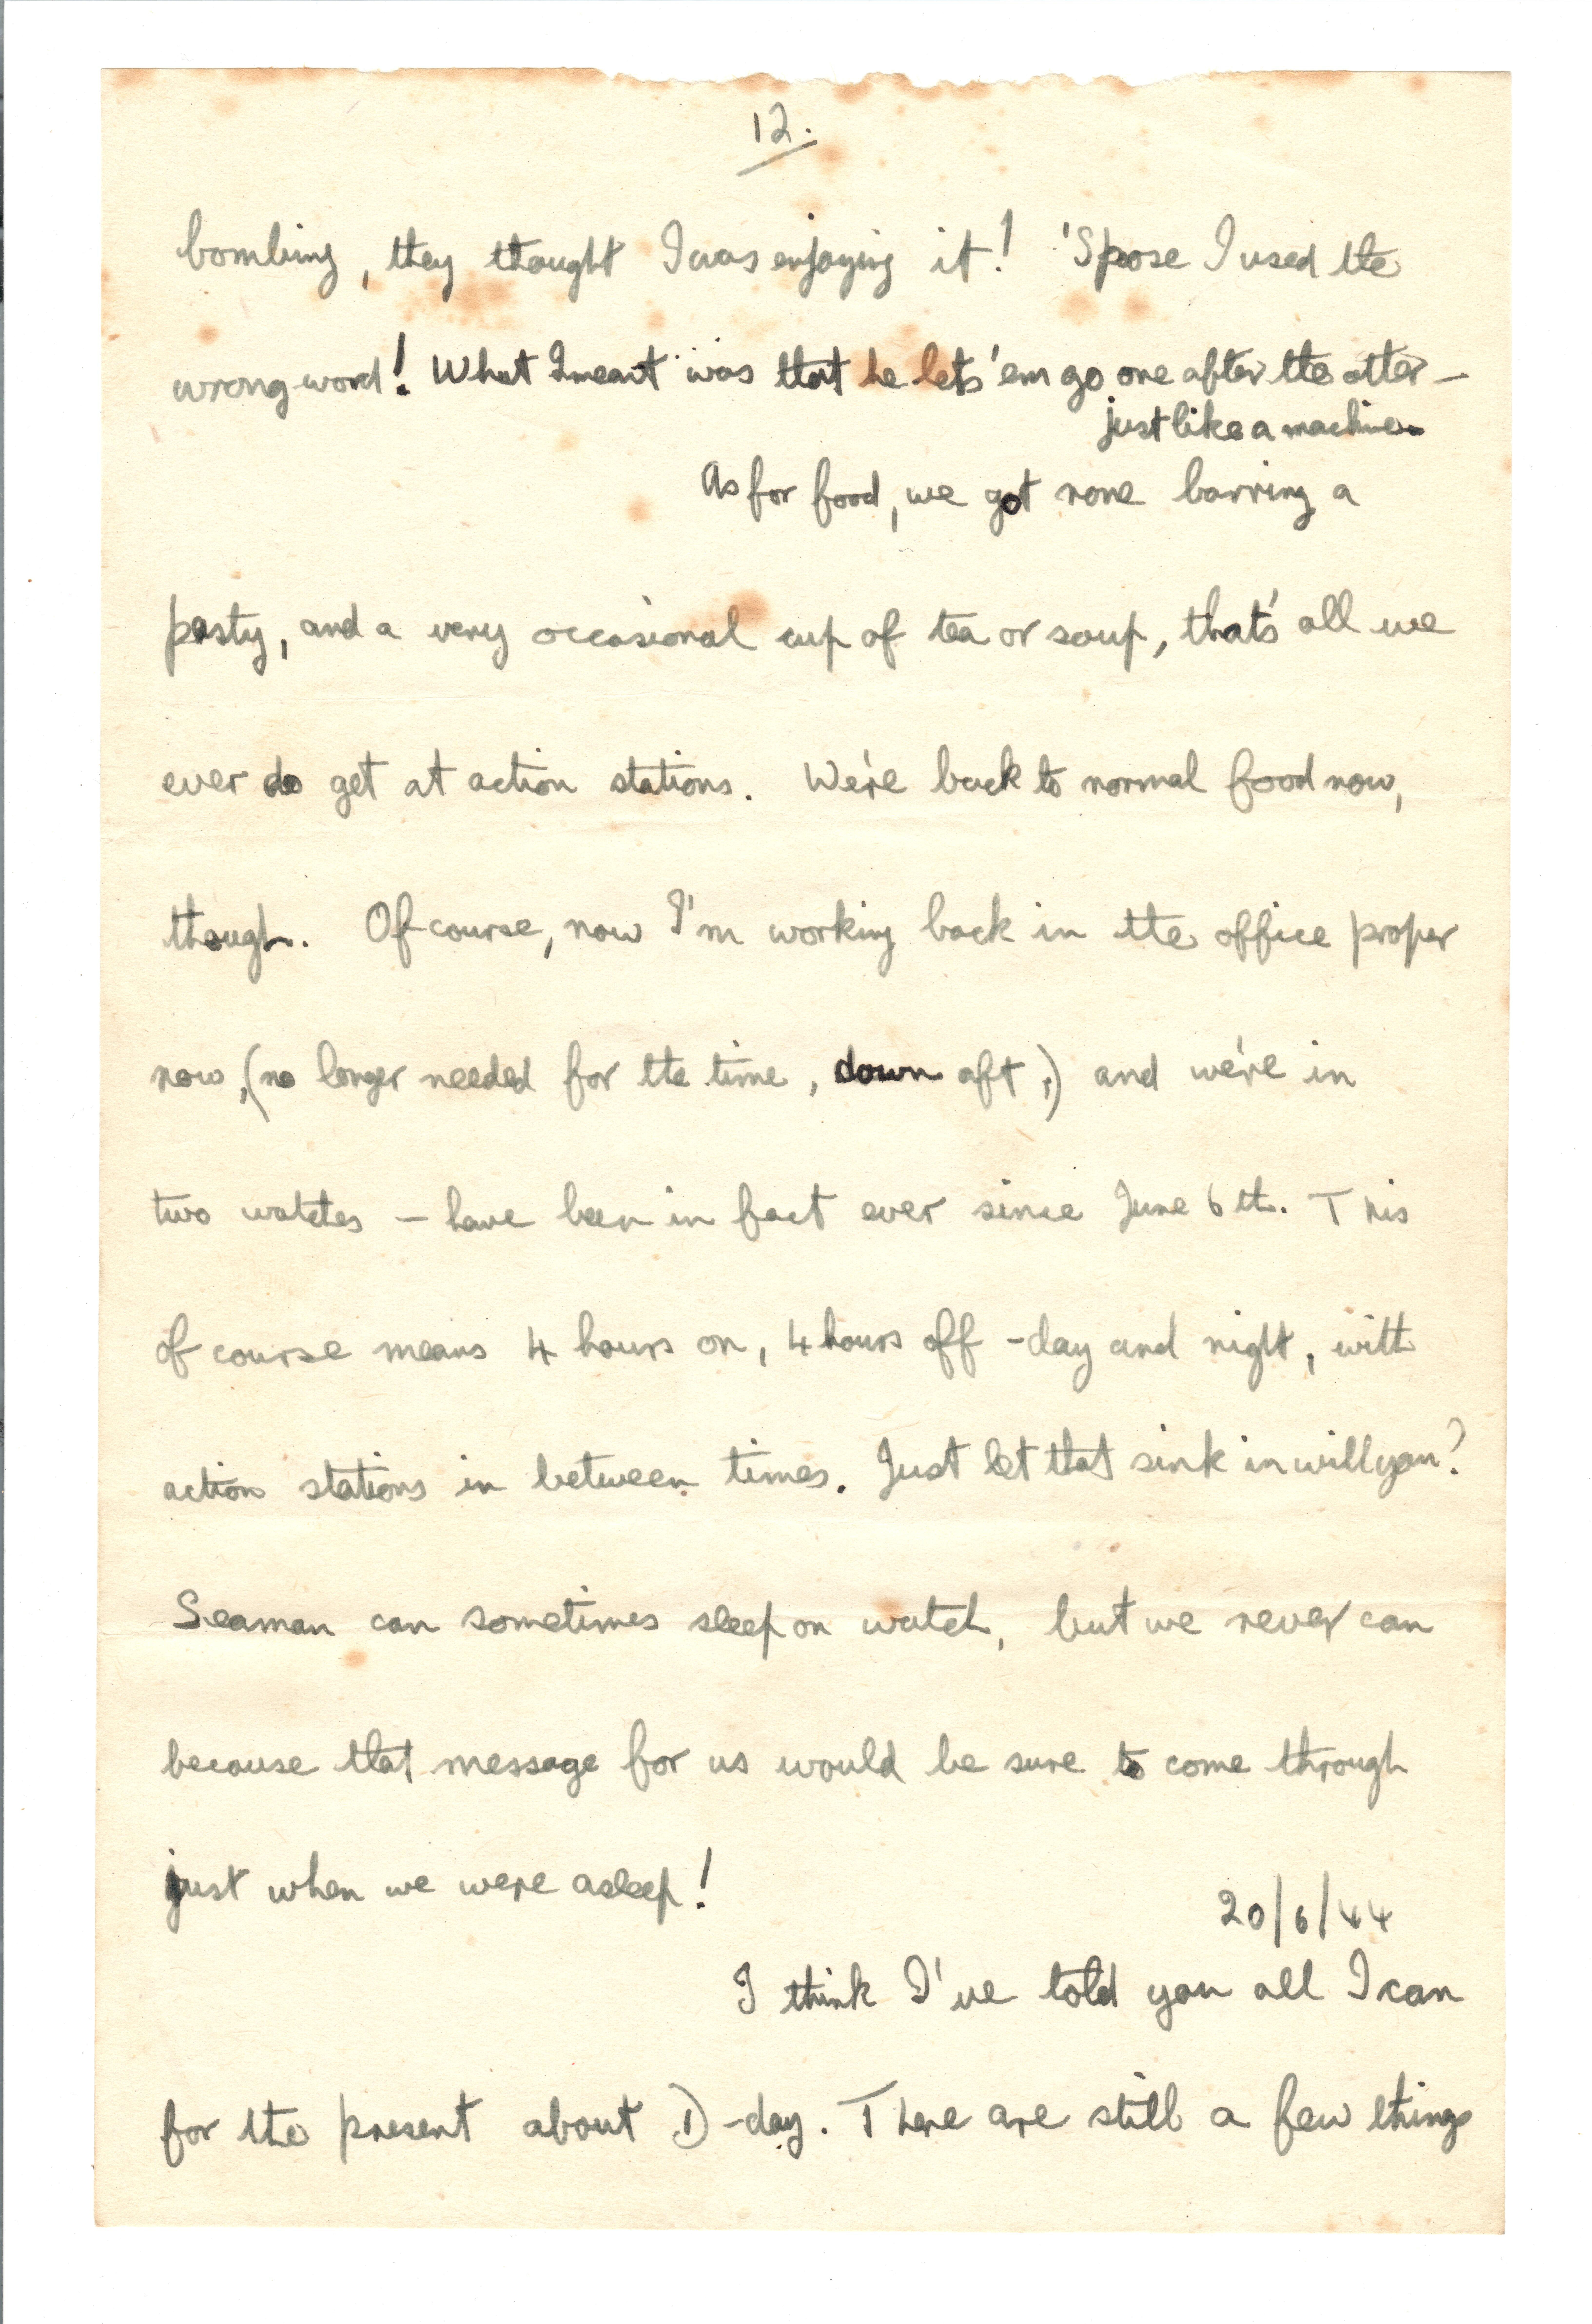 12.
bombing, they thought I was enjoying it! 'Spose I used the
wrong word! What I meant was that he lets 'em go one after the other –
just like a machine.
As for food, we got none barring a
pasty, and a very occasional cup of tea or soup, that's all we
ever do get at action stations. We're back to normal food now,
though. Of course, now I'm working back in the office proper
now, (no longer needed for the time, down aft,) and we're in
two watches – have been in fact ever since June 6th. This
of course means 4 hours on, 4 hours off - day and night, with
action stations in between times. Just let that sink in will you?
Seaman can sometimes sleep on watch, but we never can
because that message for us would be sure to come through
just when we were asleep!
20/6/44
I think I've told you all I can
for the present about D-day. There are still a few things